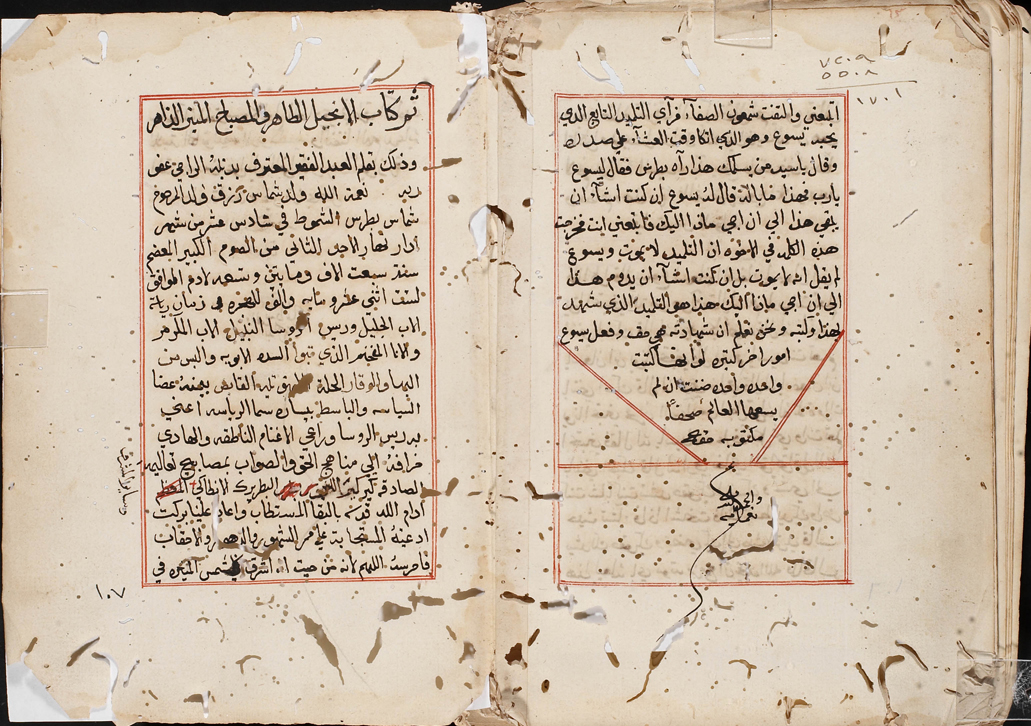 ٧٢٠٩
٥٥٠٨
١٧٠١
اتبعني والتفت شمعون الصفا فرآي التليد التابع الذي
يحبه يسوع وهو الذي اتكا وقت العشآء على صدره
وقال ياسيد من يسلمك هذا رآه بطرس فقال ليسوع
يارب فهذا ما باله قال له يسوع ان كنت اشآء ان
يبقي هذا الي ان اجي ماذا اليك فاتبعني انت فخرجت
هذه الكلمه في الاخوه ان التليد لا يموت و يسوع
لم يقل انه لا يموت بل ان كنت اشآء ان يدوم هذا
الي ان اجي ماذا اليك هذا هو التليد الذي شهد
بهذا وكتبه ونحن نعلم ان شهادته هي حق وفعل يسوع
امور اخر كتيره لو انها كتبت
واحده واحده ضننت ان لم
يسعها العالم صحفاً
مكتوبه حقا
تم كتاب الانجيل الطاهر والمصباح المنير الزاهر
وذلك بقلم العبد الفقير المعترف بدنبه الراجي عفو
ربه نعمة الله ولد شماس رزق ولد المرحوم
شماس بطرس الشموط في سادس عشر من شهر
ادار نهار الاحد الثاني من الصوم الكبير المعضم
سنة سبعت الاف ومايتين وتسعه لادم الموافق
لسنة اثني عشر ومايه والف للهجره في زمان رياسة
الاب الجليل وريس الروسا النبيل الاب المكرم
والانا المختم الذي
البها والوقار القابض بيمنه عصا
السياسه والباسط بيساره سما الرياسه اعني
به ريس الروسا وراعي الاغنام الناطقه والهادي
الي مناهج الحق والصواب بمصابيح تعاليمه
الصادقه كير البطريرك الانطاكي
ادام الله قدسه بالبقا المستطاب واعاد علينا بركت
ادعيته المستجابة على ممر الشهور والدهور والاحقاب
فاحرسه اللهم لانه من حيت انه اشرق شمس المنيره في
وساير المشرق
١٠٧